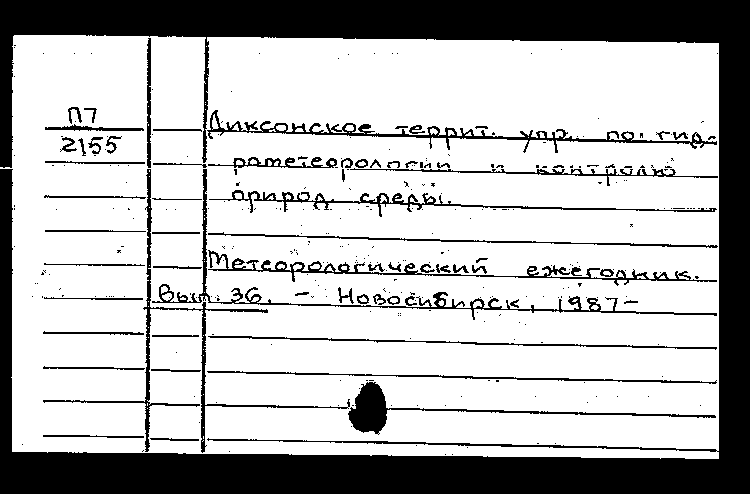 П7
2155
Диксонское террит. упр. по гид-
рометеорологии и контролю
природ. среды.
Метеорологический ежегодник.
Вып. 36. - Новосибирск, 1987-